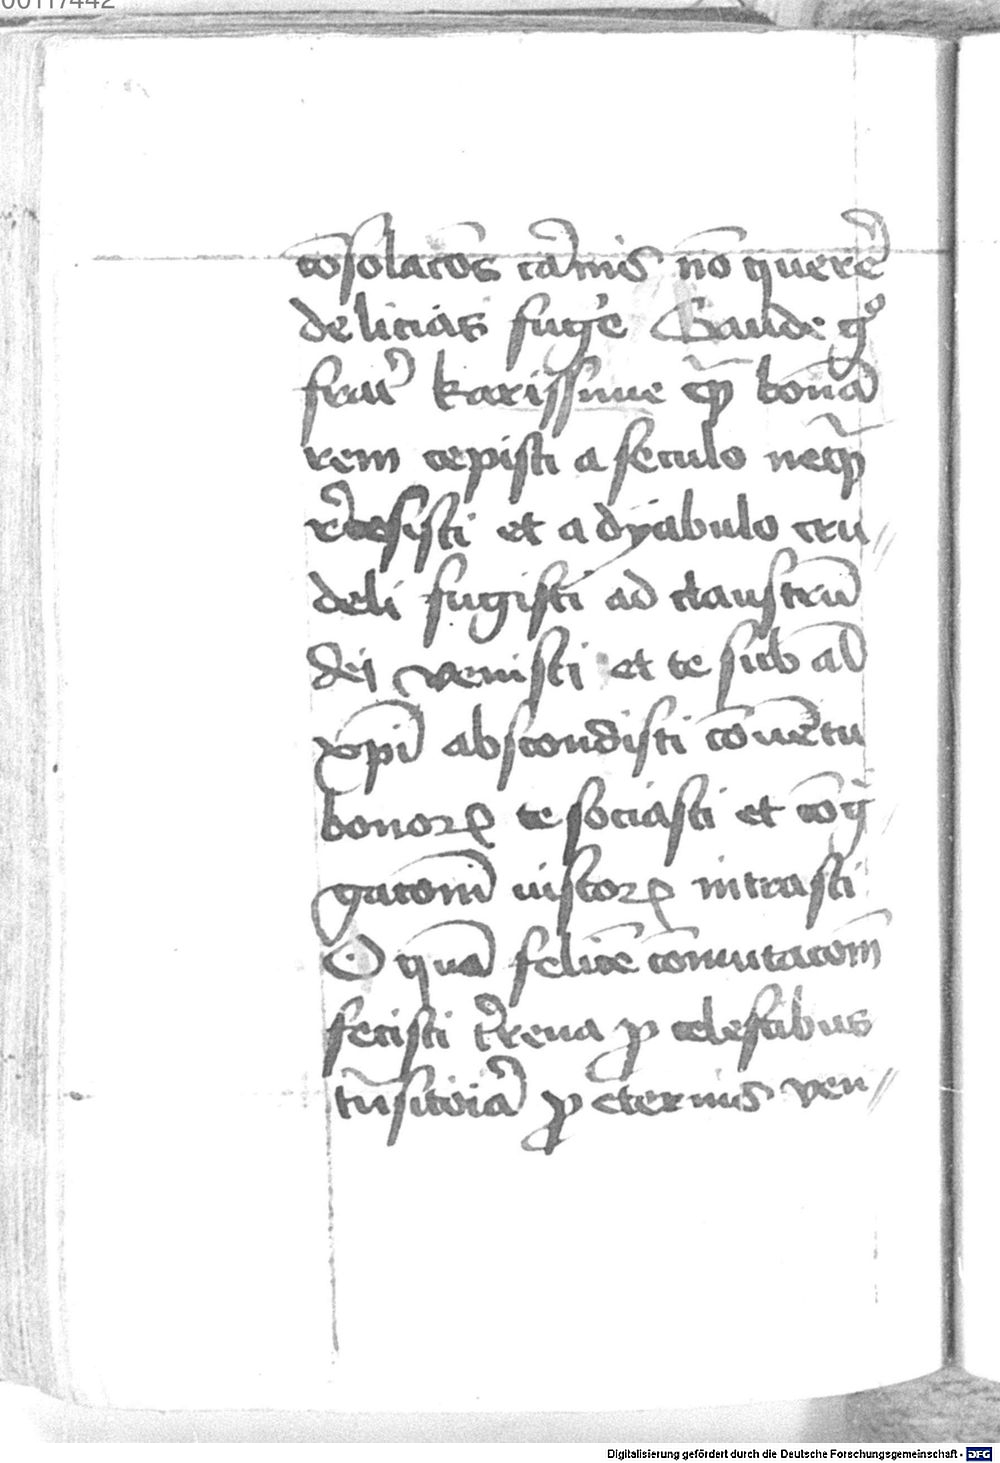 cōsolacōēs carnis nō querere
delicias fugere Gaude gº
frater karissime qꝛ bonā
rem cepisti a seculo nequā
recessisti et a dyabulo cru
deli fugisti ad claustrū
dei venisti et te sub al
xp̄i abscondisti cōuētu
bonoꝝ te sociasti et cōg
gatōni iustoꝝ intrasti
O quā felicē cōmutacōm
fecisti t̓rena ꝓ celestibus
trāsitoia ꝓ eternis ven
Digitalisierung gefördert durch die Deutsche Forschungsgemeinschaft - DFG